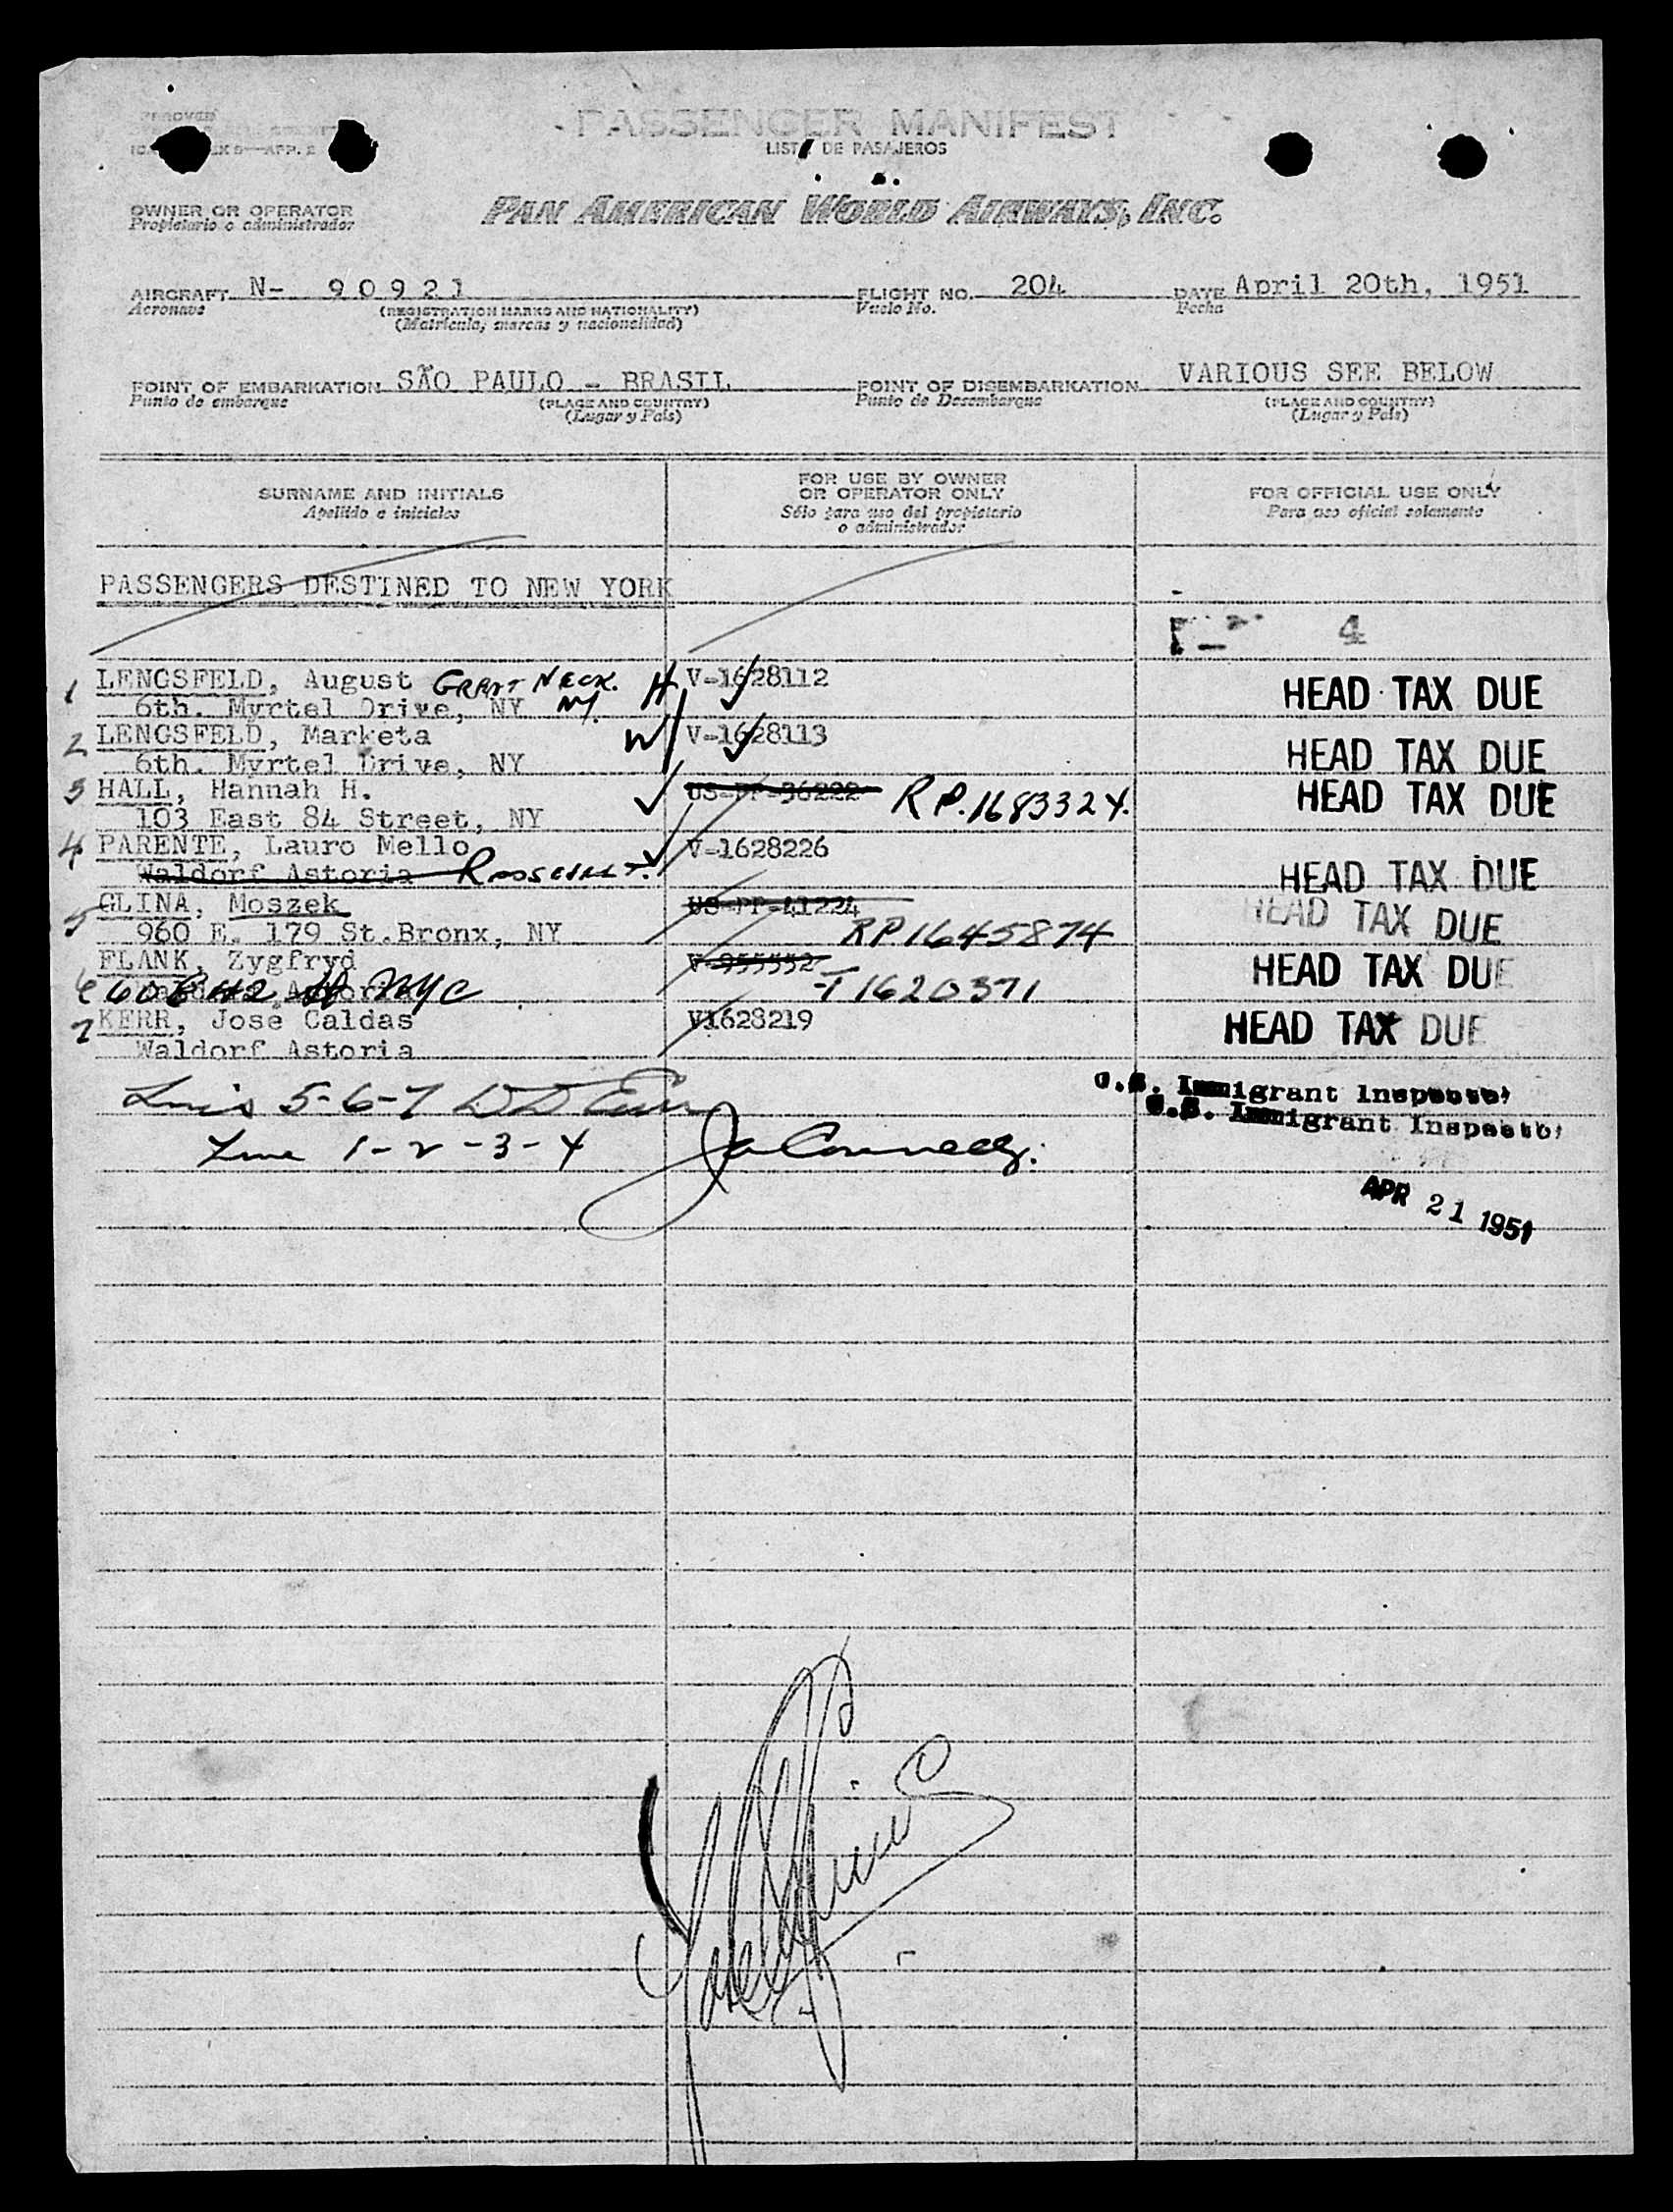 PASSENGER MANIFEST
LISTA DE PASAJEROS
OWNER OR OPERATOR
Propietario o administrador
PAN AMERICAN WORLD AIRWAYS, INC.
AIRCRAFT N- 90921 FLIGHT NO. 204 DATE April 20th, 1951
Aeronave (REGISTRATION MARKS AND NATIONALITY) Vuelo No. Fecha
(Matrícula, marcas y nacionalidad)
POINT OF EMBARKATION SÃO PAULO - BRASIL POINT OF DISEMBARKATION VARIOUS SEE BELOW
Punto de embarque (PLACE AND COUNTRY) Punto de Desembarque (PLACE AND COUNTRY)
(Lugar y País) (Lugar y País)
SURNAME AND INITIALS FOR USE BY OWNER OR OPERATOR ONLY FOR OFFICIAL USE ONLY
Apellido e iniciales Sólo para uso del propietario o administrador Para uso oficial solamente
PASSENGERS DESTINED TO NEW YORK
4
1 LENGSFELD, August GREAT NECK. H V-1628112 HEAD TAX DUE
6th. Myrtel Drive, NY NY.
2 LENGSFELD, Marketa W V-1628113 HEAD TAX DUE
6th. Myrtel Drive, NY
3 HALL, Hannah H. US-PP-36222 RP.1683324. HEAD TAX DUE
103 East 84 Street, NY
4 PARENTE, Lauro Mello V-1628226 HEAD TAX DUE
Waldorf Astoria ROOSEVELT.
5 GLINA, Moszek US-PP-41224 HEAD TAX DUE
960 E. 179 St.Bronx, NY RP1645874
6 FLANK, Zygfryd V-955552 HEAD TAX DUE
60 E 42 NYC T1620371
7 KERR, Jose Caldas V1628219 HEAD TAX DUE
Waldorf Astoria
5-6-7
U.S. Immigrant Inspector
U.S. Immigrant Inspector
Line 1-2-3-4
APR 21 1951